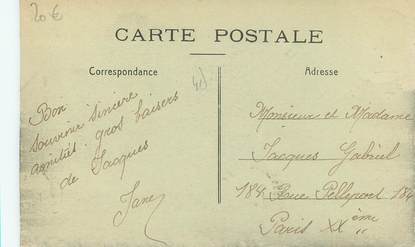 20 €
CARTE POSTALE
Correspondance
Adresse
Bon
souvenir sincère
amitiés. gros baisers
de Jacques
Jane
Monsieur et Madame
Jacques Gabriel
184 Rue Pelleport 184
Paris XX ème